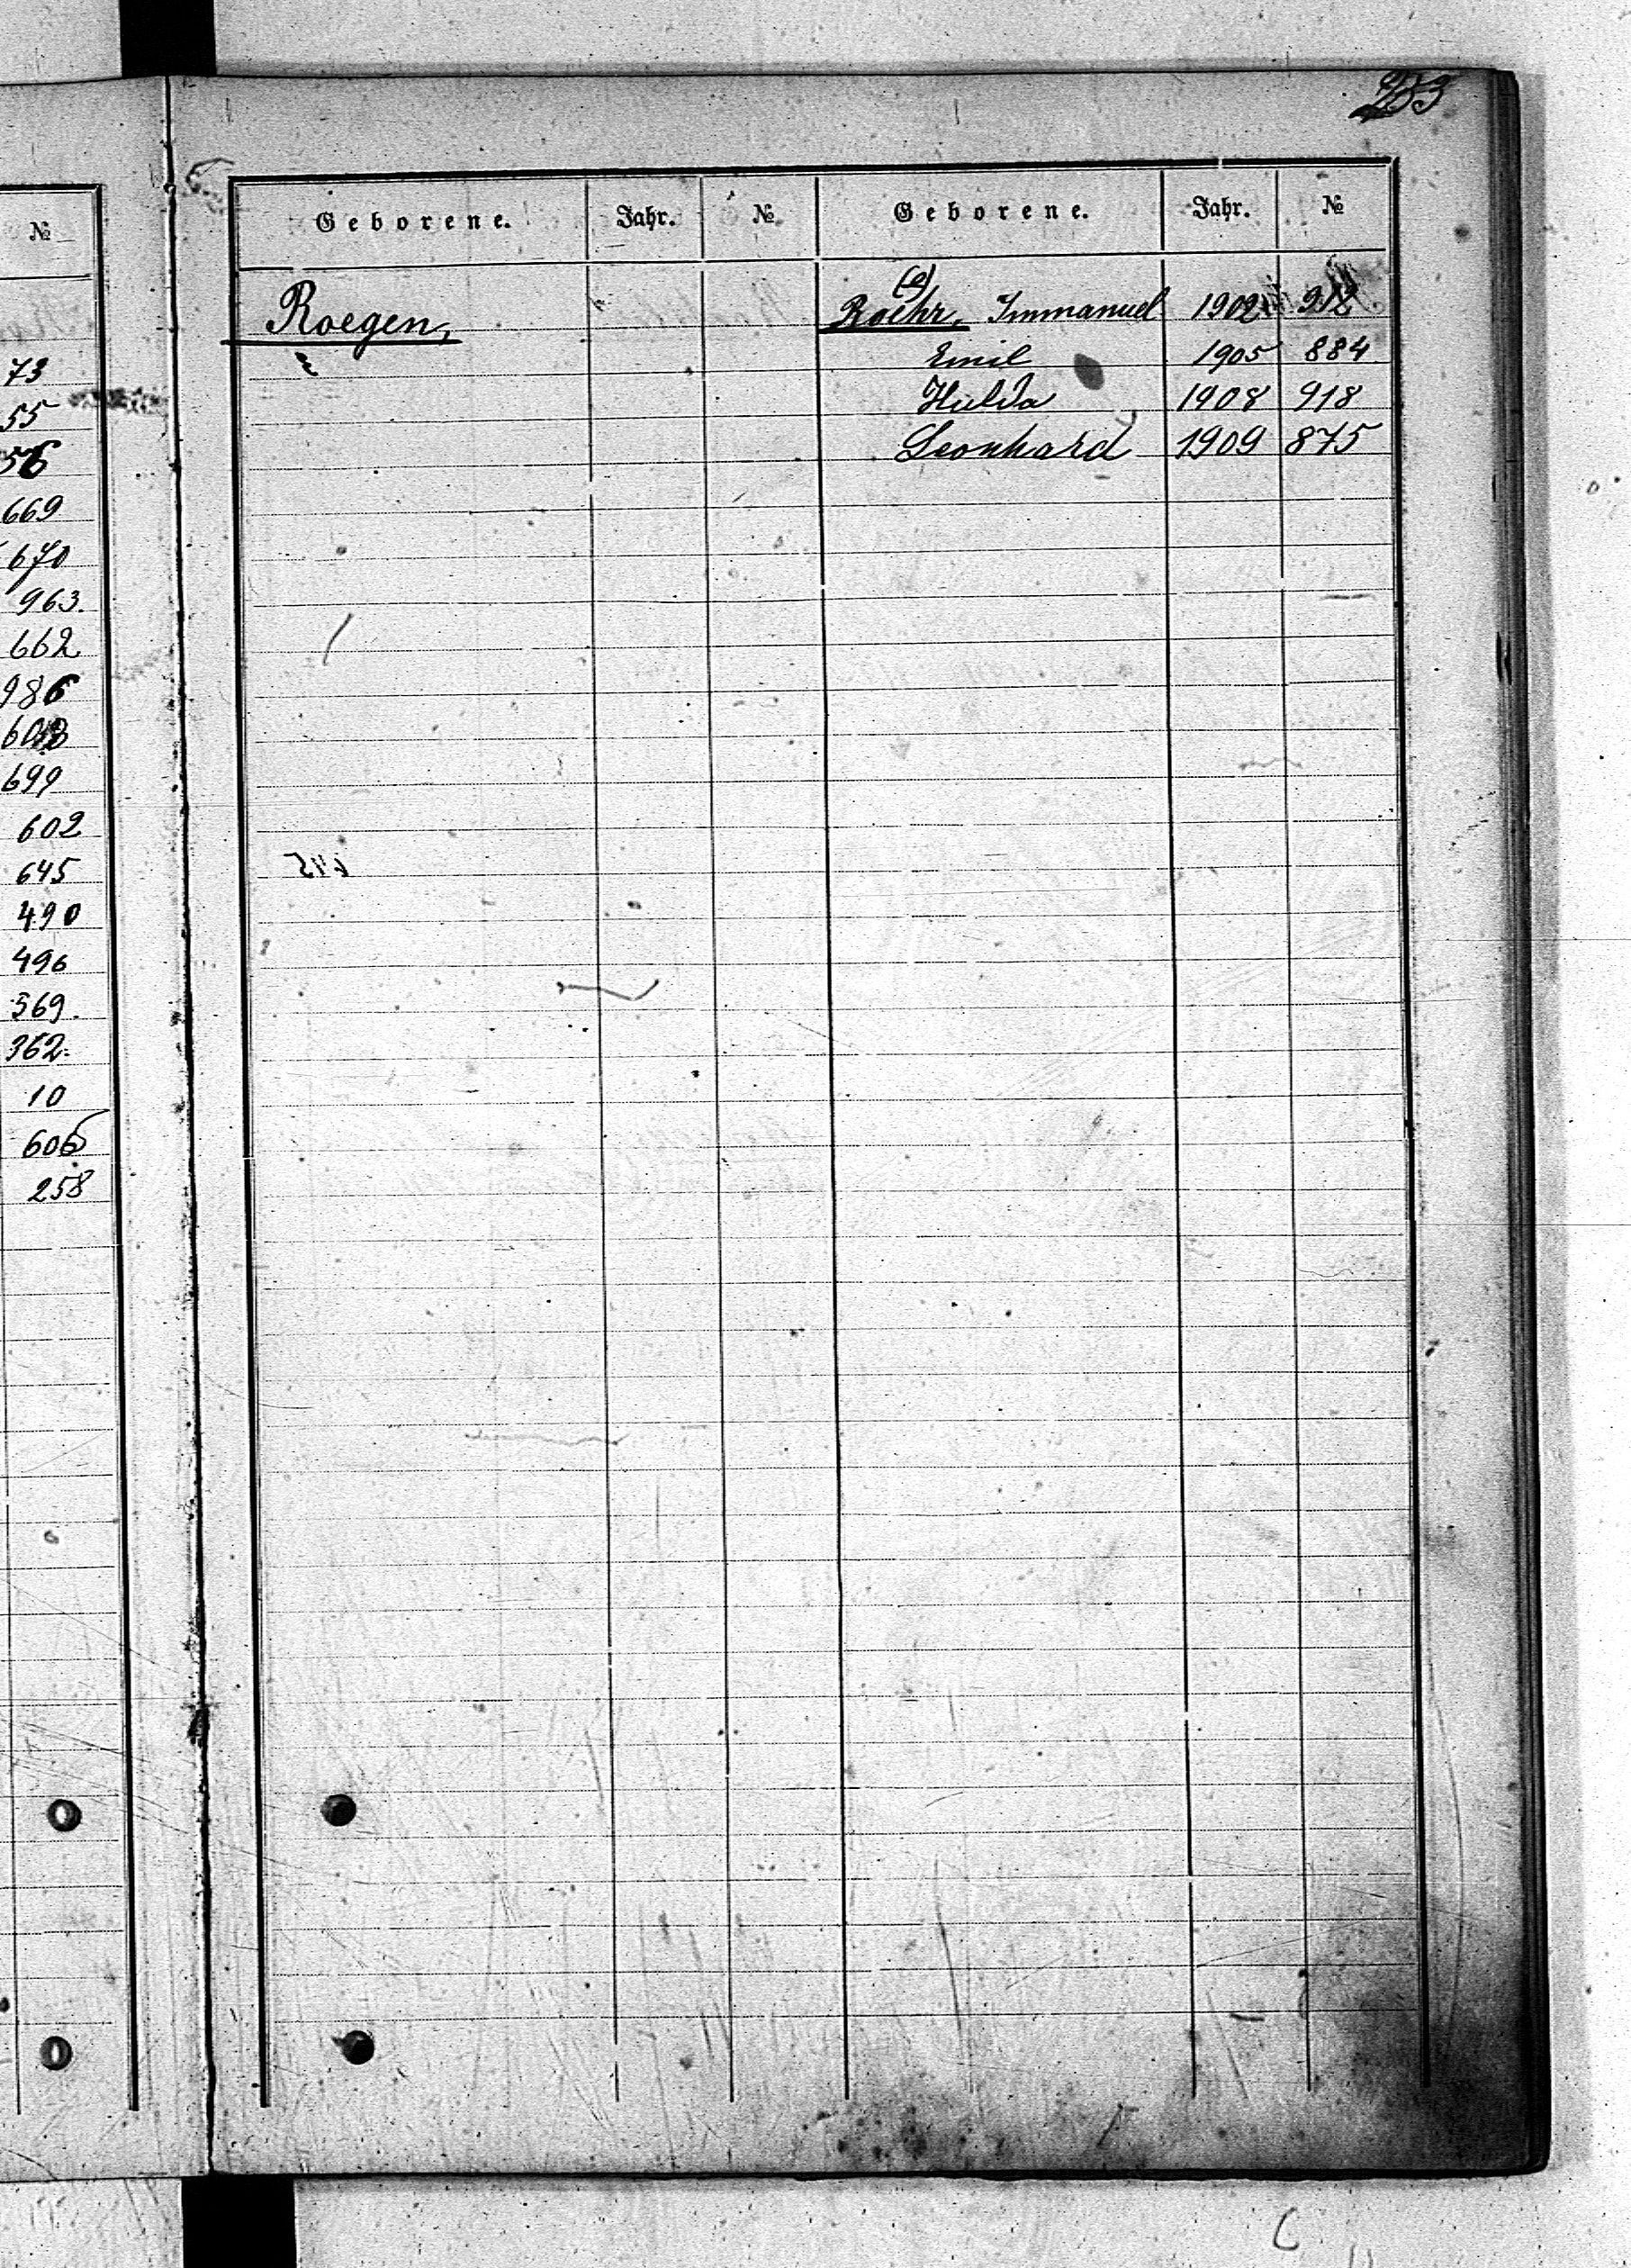 253
№
73
55
56
669
670
963.
662
986
699
602
645
490
496
369.
362.
10
606
258
Geborene. Jahr. № Geborene. Jahr. №
Roegen,
(e)
Roehr, Immanuel 1902 912
Emil 1905 884
Hulda 1908 918
Leonhard 1909 875